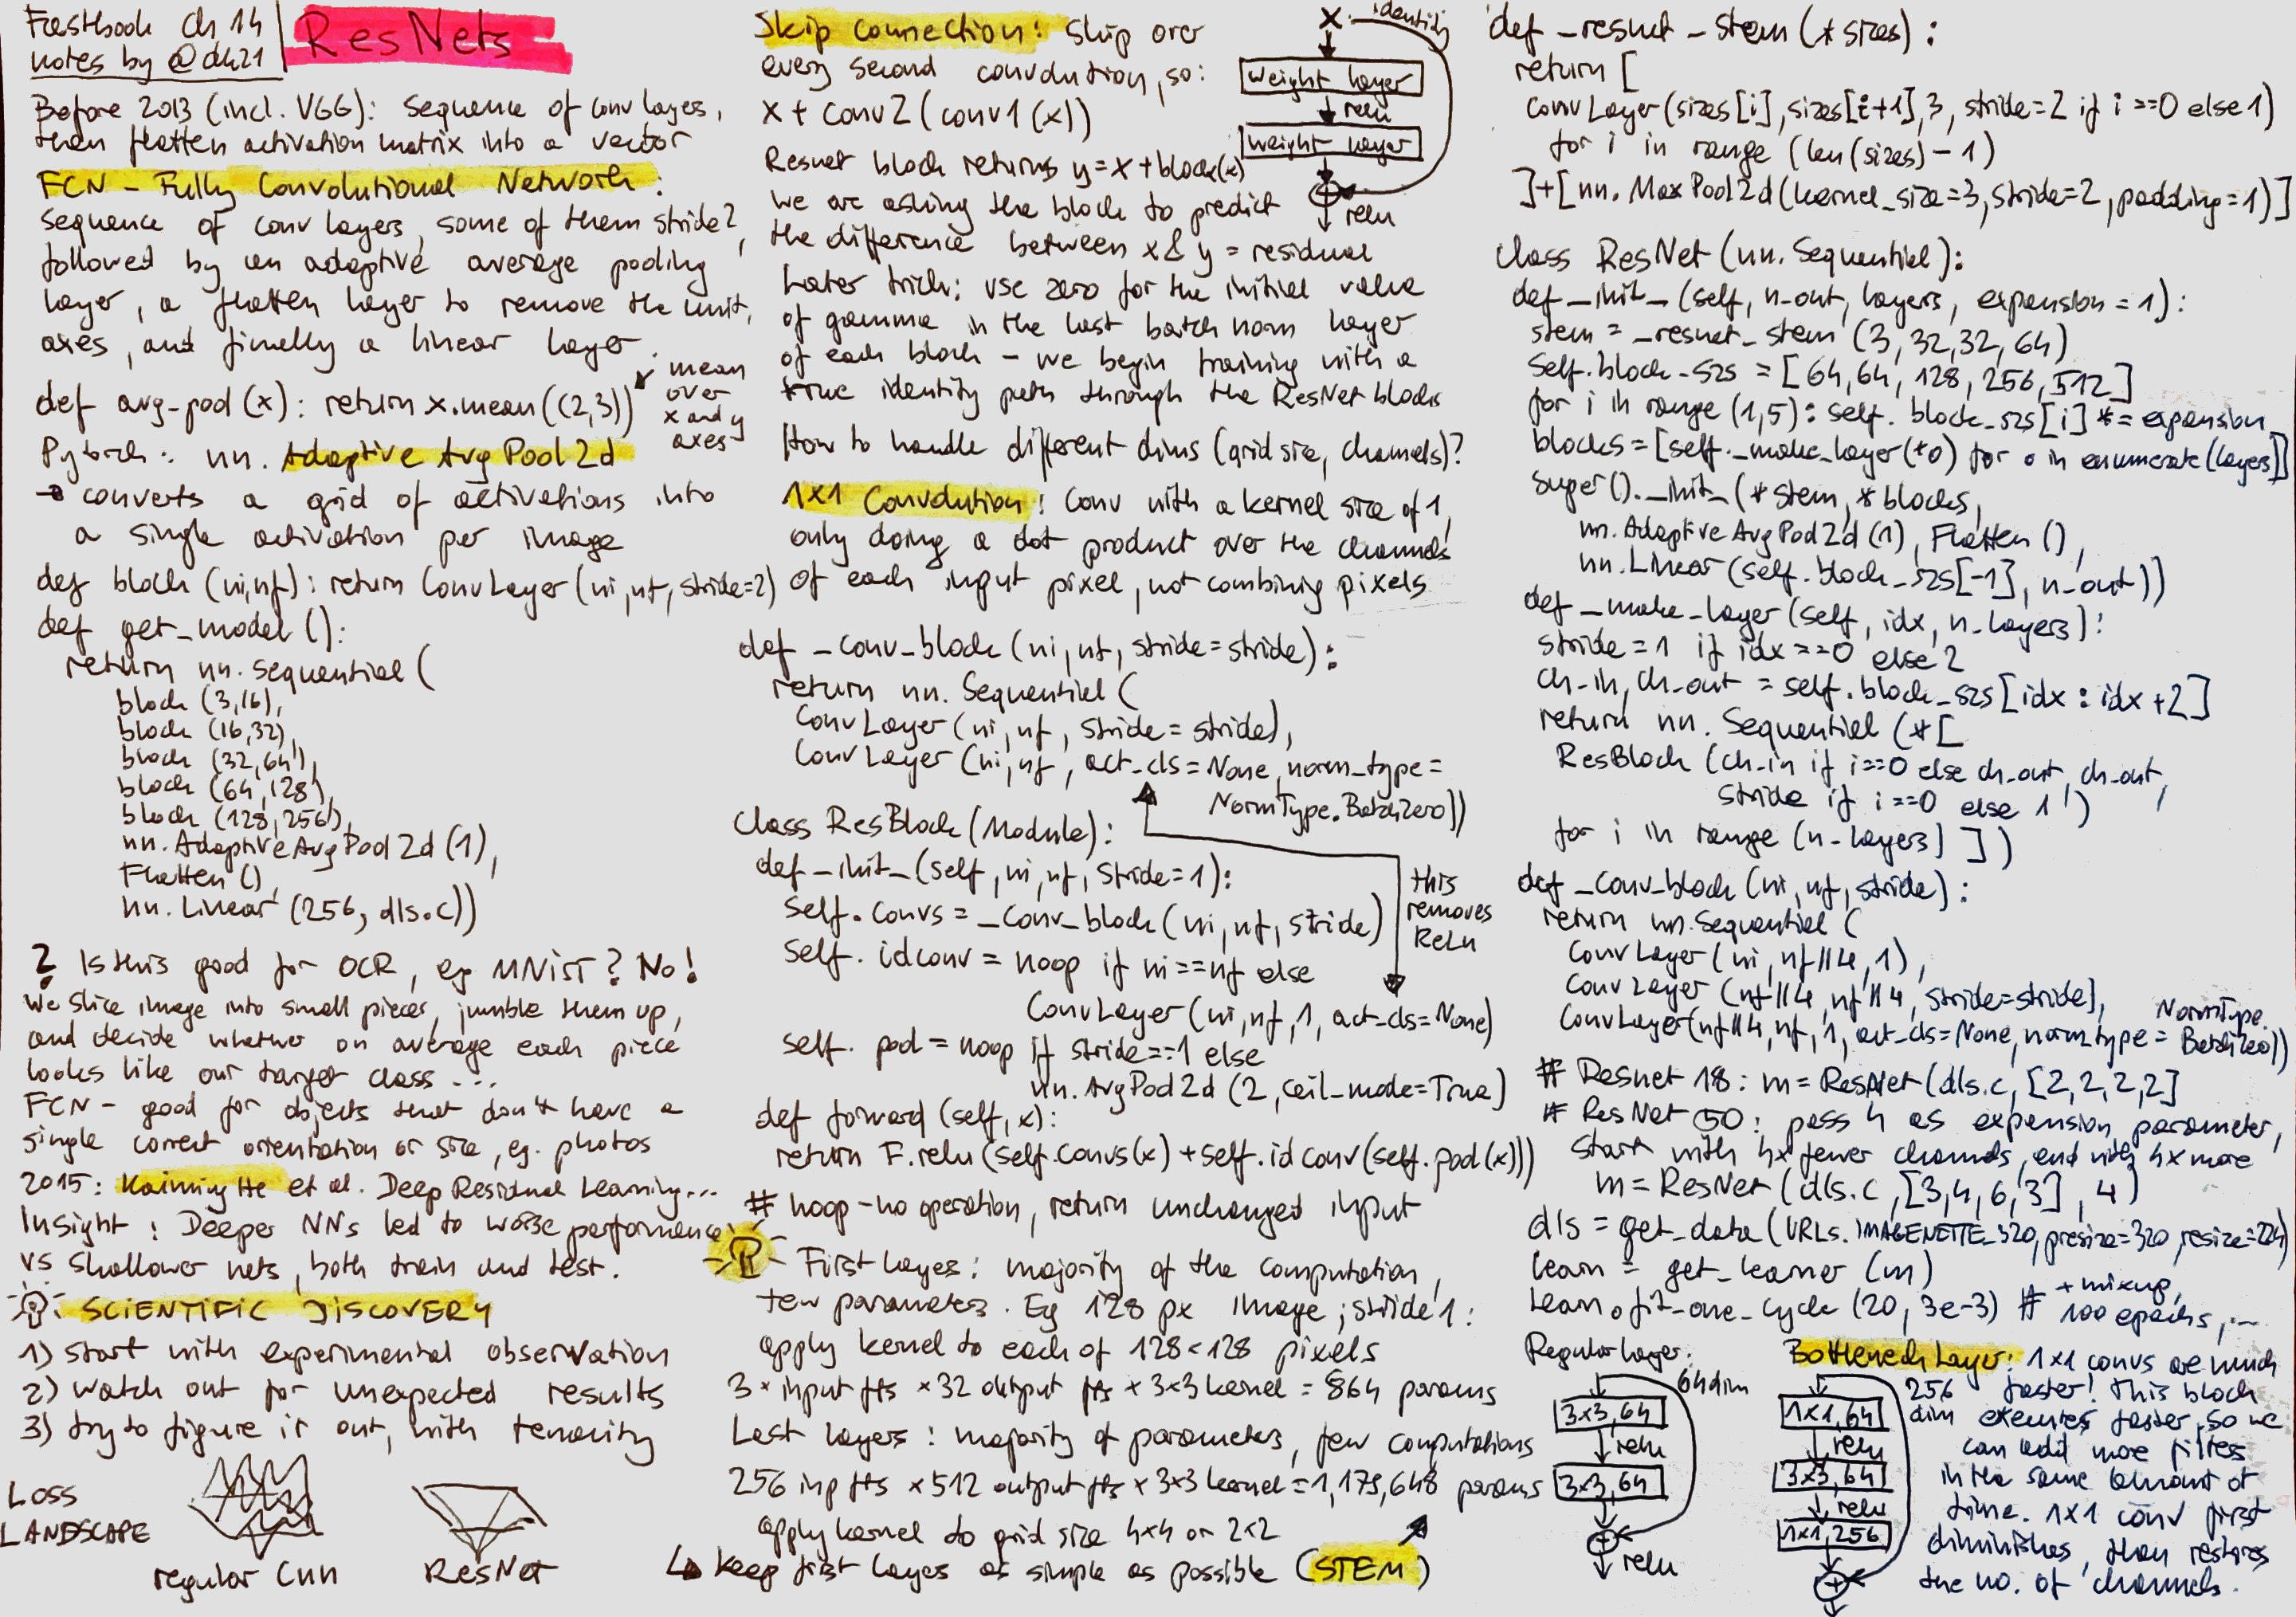 Fastbook Ch 14
notes by @dk21
ResNets
Before 2013 (incl. VGG): sequence of conv layers,
then flatten activation matrix into a vector
FCN - Fully Convolutional Network:
sequence of conv layers, some of them stride 2,
followed by an adaptive average pooling
layer, a flatten layer to remove the unit
axes, and finally a linear layer.
def avg_pool(x): return x.mean((2,3))
mean
over
x and y
axes
Pytorch: nn.AdaptiveAvgPool2d
→ converts a grid of activations into
a single activation per image
def block(ni,nf): return ConvLayer(ni,nf,stride=2)
def get_model():
return nn.Sequential(
block (3,16),
block (16,32),
block (32,64),
block (64,128),
block (128,256),
nn.AdaptiveAvgPool2d(1),
Flatten(),
nn.Linear(256, dls.c))
? Is this good for OCR, eg MNIST? No!
We slice image into small pieces, jumble them up,
and decide whether on average each piece
looks like our target class...
FCN - good for objects that don't have a
single correct orientation or size, eg. photos
2015: Kaiming He et al. Deep Residual Learning...
Insight: Deeper NNs led to worse performance
vs shallower nets, both train and test.
SCIENTIFIC DISCOVERY
1) start with experimental observation
2) watch out for unexpected results
3) try to figure it out, with tenacity
LOSS
LANDSCAPE
regular Cnn
ResNet
Skip connection: Skip over
every second convolution, so:
x + conv2(conv1(x))
Resnet block returns y=x+block(x)
we are asking the block to predict
the difference between x & y = residual
Later trick: use zero for the initial value
of gamma in the last batch norm layer
of each block - we begin training with a
true identity path through the ResNet blocks
x identity
weight layer
relu
weight layer
+
relu
How to handle different dims (grid size, channels)?
1x1 Convolution: Conv with a kernel size of 1,
only doing a dot product over the channels
of each input pixel, not combining pixels
def _conv_block(ni,nf,stride=stride):
return nn.Sequential(
ConvLayer(ni,nf, stride=stride),
ConvLayer(ni,nf, act_cls=None, norm_type=
NormType.BatchZero))
class ResBlock(Module):
def _init_(self,ni,nf,stride=1):
self.convs = _conv_block(ni,nf,stride)
self.idconv = noop if ni==nf else
ConvLayer(ni,nf,1,act_cls=None)
this
removes
ReLu
self.pool = noop if stride==1 else
nn.AvgPool2d(2,ceil_mode=True)
def forward(self,x):
return F.relu(self.convs(x)+self.idconv(self.pool(x)))
# noop - no operation, return unchanged input
- First layers: majority of the computation,
few parameters. Eg 128 px image; stride 1:
apply kernel to each of 128x128 pixels
3 x input fts x 32 output fts x 3x3 kernel = 864 params
Last layers: majority of parameters, few computations
256 inp fts x 512 output fts x 3x3 kernel = 1,179,648 params
apply kernel to grid size 4x4 or 2x2
↳ keep first layers as simple as possible (STEM)
def _resnet_stem(*sizes):
return [
ConvLayer(sizes[i],sizes[i+1],3, stride=2 if i==0 else 1)
for i in range (len(sizes)-1)
]+[nn.MaxPool2d(kernel_size=3,stride=2,padding=1)]
class ResNet(nn.Sequential):
def _init_(self, n_out, layers, expansion=1):
stem = _resnet_stem(3,32,32,64)
self.block_szs = [64,64,128,256,512]
for i in range(1,5): self.block_szs[i] *= expansion
blocks=[self._make_layer(*o) for o in enumerate(layers)]
super()._init_(*stem,*blocks,
nn.AdaptiveAvgPool2d(1), Flatten(),
nn.Linear(self.block_szs[-1], n_out))
def _make_layer(self, idx, n_layers):
stride=1 if idx==0 else 2
ch_in, ch_out = self.block_szs[idx:idx+2]
return nn.Sequential(*[
ResBlock(ch_in if i==0 else ch_out, ch_out,
stride if i==0 else 1)
for i in range(n_layers) ])
def _conv_block(ni,nf,stride):
return nn.Sequential(
ConvLayer(ni,nf//4,1),
ConvLayer(nf//4,nf//4,stride=stride),
ConvLayer(nf//4,nf,1,act_cls=None,norm_type=NormType.BatchZero))
# Resnet 18: m=ResNet(dls.c,[2,2,2,2]
# ResNet 50: pass 4 as expansion parameter,
start with 4x fewer channels, end with 4x more
m=ResNet(dls.c,[3,4,6,3],4)
dls = get_data(URLs.IMAGENETTE_320,presize=320,resize=224)
learn = get_learner(m)
learn.fit_one_cycle(20, 3e-3) # 100 epochs,...
+ mixup,
Regular layer:
64 dim
3x3,64
relu
3x3,64
+
relu
Bottleneck Layer: 1x1 convs are much
faster! This block
executes faster, so we
can add more filters
in the same amount of
time. 1x1 conv first
diminishes, then restores
the no. of channels.
256
dim
1x1,64
relu
3x3,64
relu
1x1,256
+